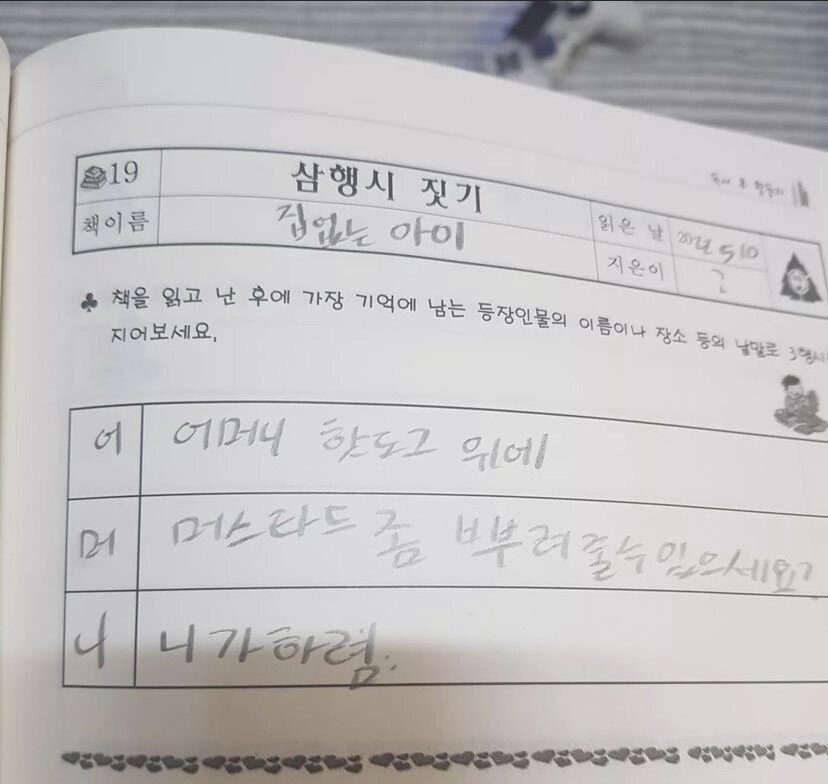 19 삼행시 짓기
책이름 집없는 아이 읽은 날 5 10
지은이 ?
♣ 책을 읽고 난 후에 가장 기억에 남는 등장인물의 이름이나 장소 등의 낱말로 3행시
지어보세요.
어 어머니 핫도그 위에
머 머스타드 좀 ㅂ부려줄수있으세요?
니 니가하렴.